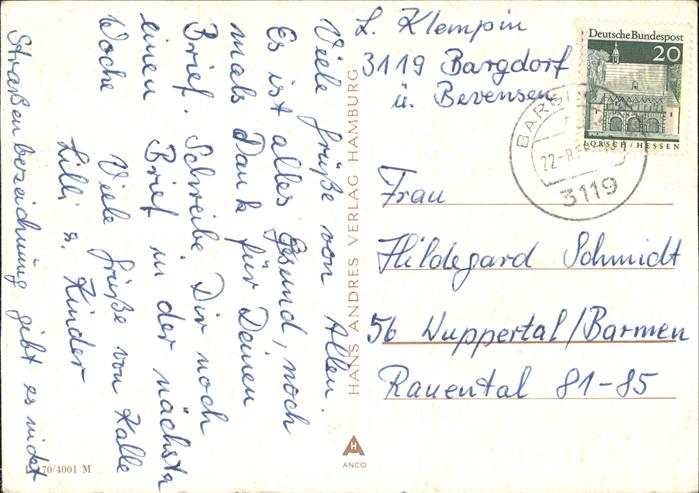 L. Klempin
3119 Bargdorf
ü. Bevensen
Deutsche Bundespost
20
LORSCH/HESSEN
3119
Viele Grüße von Allen.
Es ist alles Gesund, noch
mals Dank für Deinen
Brief. Schreibe Dir noch
einen Brief in der nächsta
Woche Viele Grüße von Kalle
Lilli u. Kinder
Straßenbezeichnung gibt es nicht
HANS ANDRES VERLAG HAMBURG
Frau
Hildegard Schmidt
56 Wuppertal/Barmen
Rauental 81-85
ANCO
170/4001 M